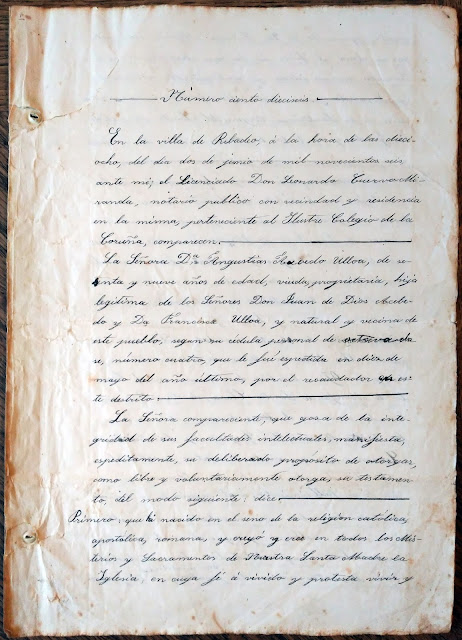 Número ciento dieciseis.
En la villa de Ribadeo, á la hora de las dieci-
ocho, del dia dos de junio de mil novecientos seis
ante mí, el Licenciado Don Leonardo Cuervo Mi-
randa, notario publico con vecindad y residencia
en la misma, perteneciente al Ilustre Colegio de la
Coruña, comparecen.
La Señora Dª Angustias Acebedo Ulloa, de se-
tenta y nueve años de edad, viuda, proprietaria, hija
legitima de los Señores Don Juan de Dios Acebe-
do y Da Francisca Ulloa, y natural y vecina de
este pueblo, segun su cédula personal de cla
se, número cuatro, que le fué expedida en diez de
mayo del año último, por el recaudador es-
te distrito.
La Señora compareciente, que goza de la inte-
gridad de sus facultades intelectuales, manifiesta,
expeditamente, su deliberado propósito de otorgar,
como libre y voluntariamente otorga, su testamen-
to, del modo siguiente: dice
Primero: que há nacido en el seno de la religion católica,
apostolica, romana, y creyó y cree en todos los Mis-
terios y Sacramentos de Nuestra Santa Madre la
Iglesia, en cuya fé á vivido y protesta vivir y